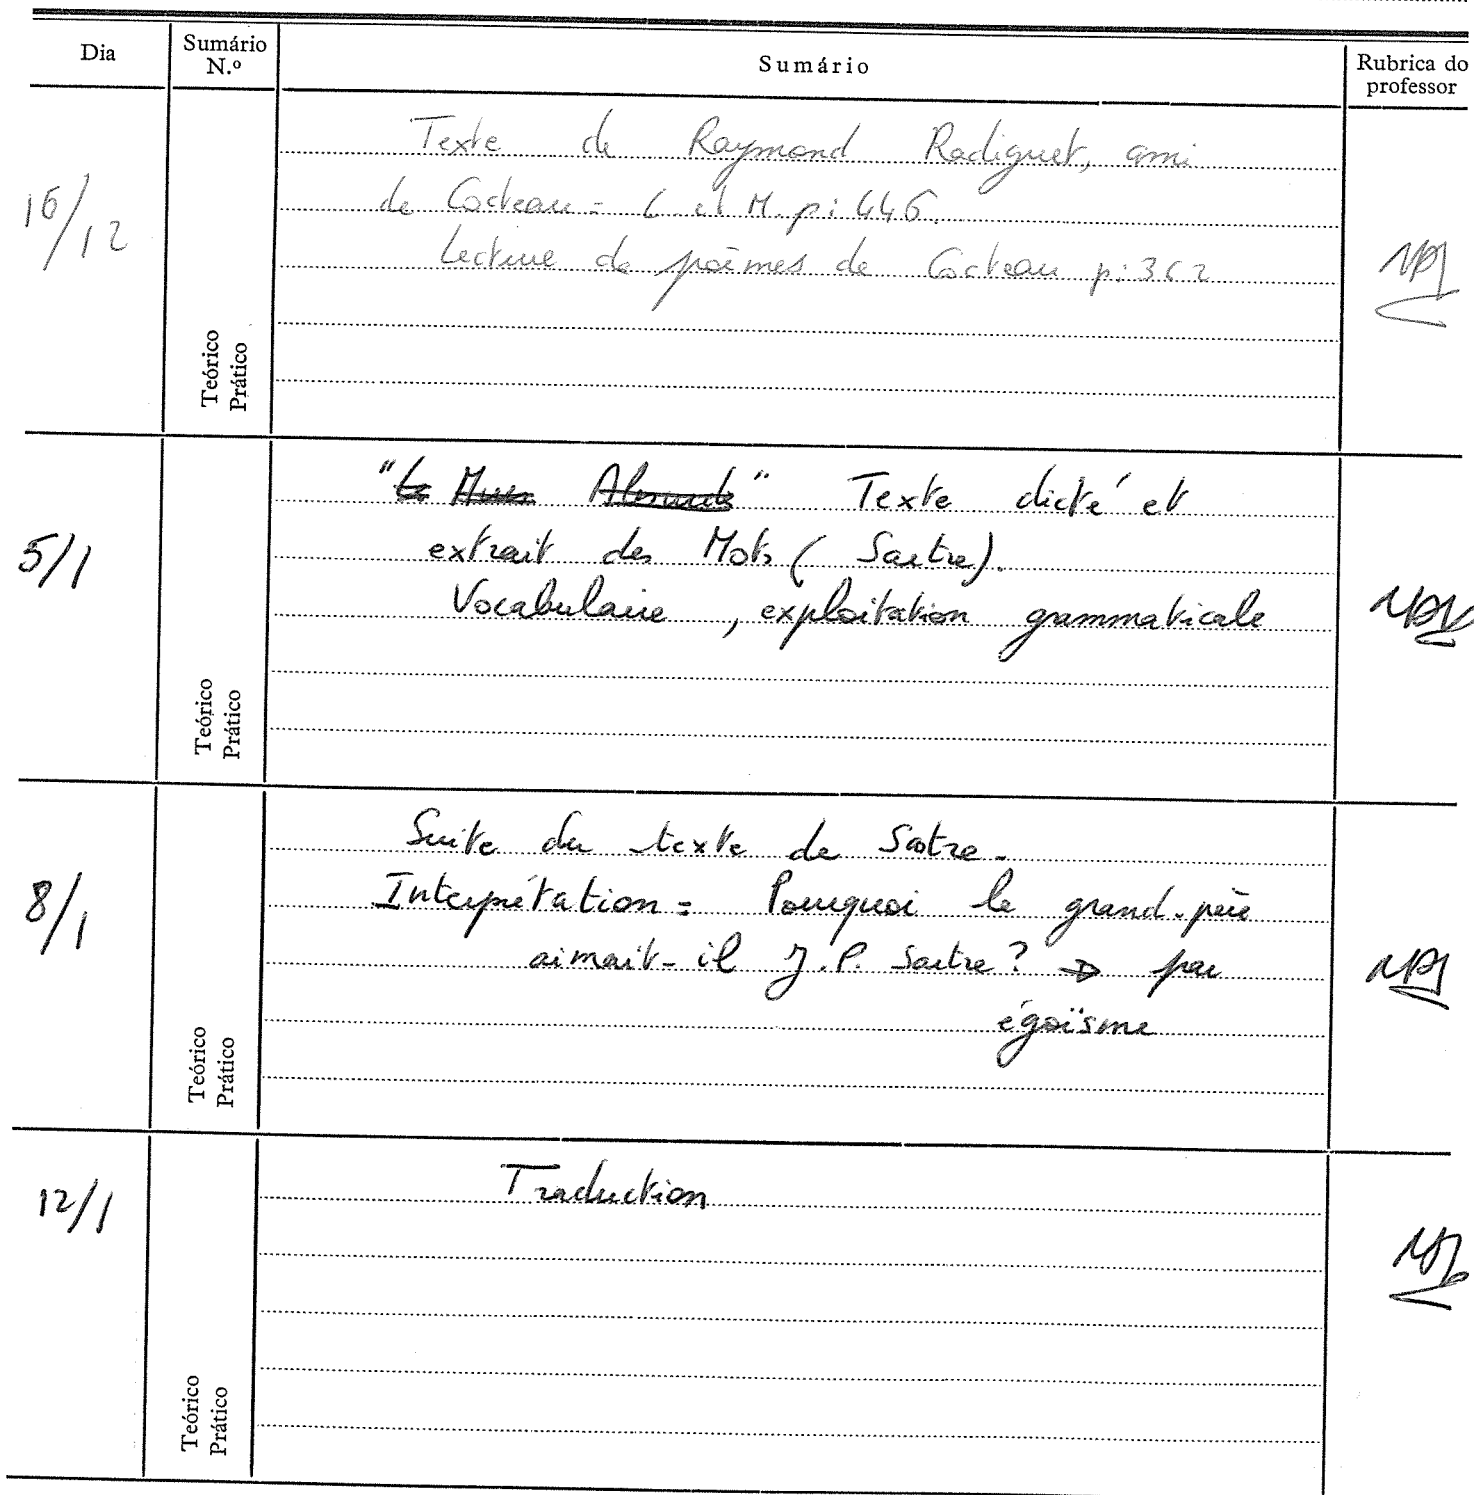 Dia
Sumário N.º
Sumário
Rubrica do professor
16/12
Teórico
Prático
Texte de Raymond Radiguet, ami
de Cocteau = C et M. p: 446.
Lecture de poèmes de Cocteau p: 362
5/1
Teórico
Prático
" " Texte dicté et
extrait des Mots (Sartre).
Vocabulaire, exploitation grammaticale
8/1
Teórico
Prático
Suite du texte de Sartre.
Interprétation = Pourquoi le grand-père
aimait-il J.P. Sartre? → par
égoïsme
12/1
Teórico
Prático
Traduction